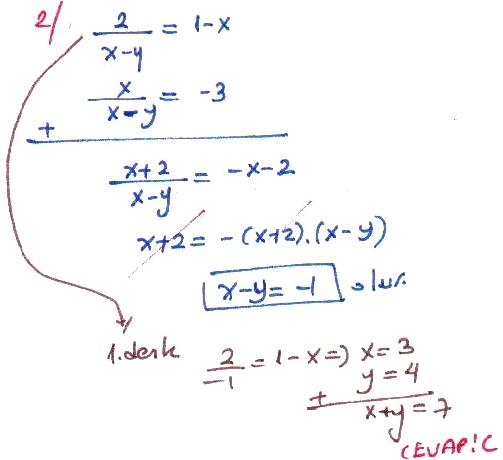 2/ 2/(x-y) = 1-x
x/(x-y) = -3
+
(x+2)/(x-y) = -x-2
x+2 = -(x+2).(x-y)
x-y = -1 olur.
1. denk 2/-1 = 1-x => x=3
y=4
+ x+y=7
CEVAP: C